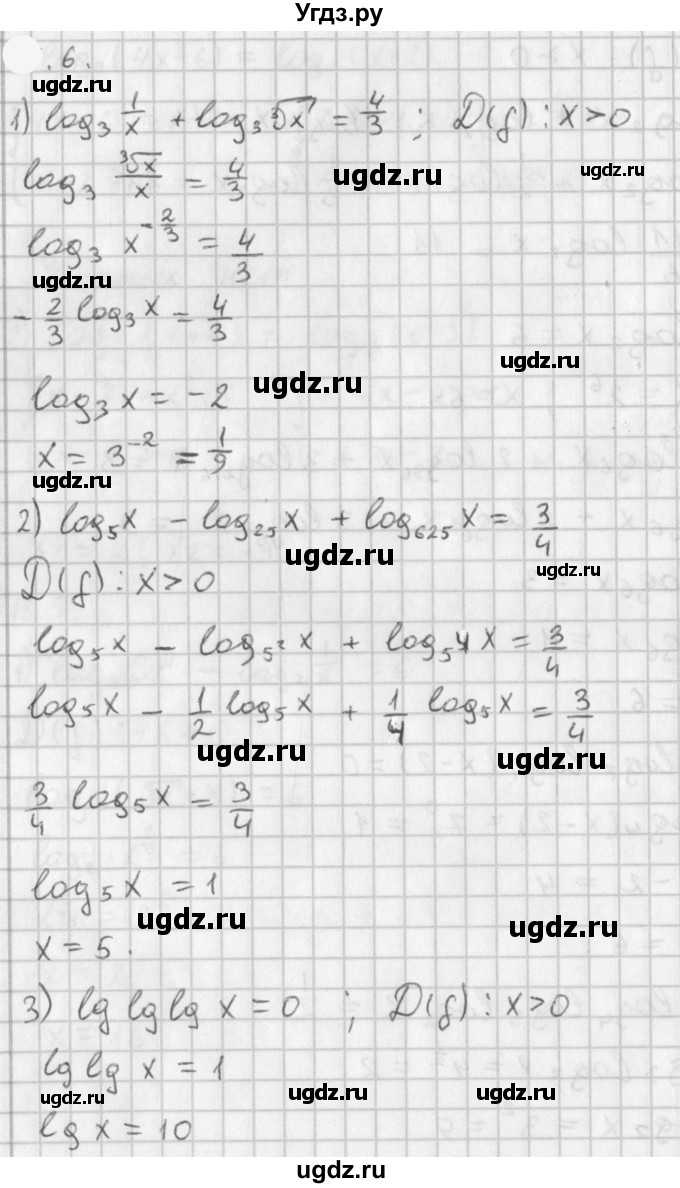 Угдз.ру
.6.
ugdz.ru
1) log₃ 1/x + log₃ ∛x = 4/3 ; D(f) : x > 0
ugdz.ru
ugdz.ru
log₃ ∛x/x = 4/3
log₃ x^(-2/3) = 4/3
ugdz.ru
-2/3 log₃ x = 4/3
ugdz.ru
ugdz.ru
log₃ x = -2
x = 3⁻² = 1/9
ugdz.ru
2) log₅x - log₂₅x + log₆₂₅x = 3/4
ugdz.ru
ugdz.ru
D(f) : x > 0
log₅x - log₅² x + log₅4 x = 3/4
ugdz.ru
log₅x - 1/2 log₅x + 1/4 log₅x = 3/4
ugdz.ru
ugdz.ru
3/4 log₅x = 3/4
log₅x = 1
ugdz.ru
ugdz.ru
x = 5.
3) lg lg lg x = 0 ; D(f) : x > 0
lg lg x = 1
ugdz.ru
ugdz.ru
ugdz.ru
lg x = 10
ugdz.ru